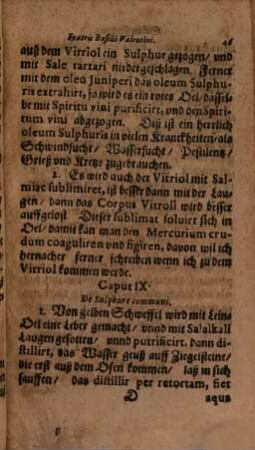 Fratris Basilii Valentini. 46
auß dem Vitriol ein Sulphur gezogen/ vnd
mit Sale tartari nidergeschlagen. Ferner
mit dem oleo Juniperi das oleum Sulphu-
ris extrahirt, so wird es ein rotes Oel/ dassel-
be mit Spiritu vini purificirt, vnd den Spiri-
tum vini abgezogen. Diß ist ein herrlich
oleum Sulphuris in vielen Kranckheiten/ als
Schwindsucht/ Wassersucht/ Pestilentz/
Grieß vnd Kretze zugebrauchen.
2. Es wird auch der Vitriol mit Sal-
miac sublimiret, ist besser dann mit der Lau-
gen/ dann das Corpus Vitroli wird besser
auffgelöst Dieser sublimat soluirt sich in
Oel/ damit kan man den Mercurium cru-
dum coaguliren vnd figiren, davon wil ich
hernacher ferner schreiben wenn ich zu dem
Vitriol kommen werde.
Caput IX.
De Sulphure communi,
1. Von gelben Schweffel wird mit Lein-
Oel eine Leber gemacht/ vnnd mit Salalkali
Laugen gesotten/ vnnd putrificirt. dann di-
stillirt, das Wasser geuß auff Ziegelsteine/
die erst auß dem Ofen kommen/ laß in sich
sauffen/ das distillir per retortam, fiet
D aqua